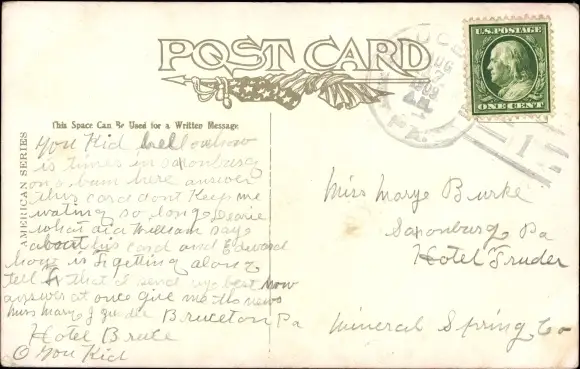 POST CARD
U.S. POSTAGE
ONE CENT
AUG
1909
PA.
This Space Can Be Used for a Written Message
AMERICAN SERIES
You Kid hello how
is times in Saxonburg
on a bum here answer
this card dont Keep me
wating so long Dearie
what did William say
about his card and Edward
how is Fs getting along
tell Fs that I send my best now
answer at once give me the news
Miss Mary J Bruceton Pa
Hotel Brute
O You Kid
Miss Marye Burke
Saxonburg Pa
Hotel Fruder
Mineral Spring Co